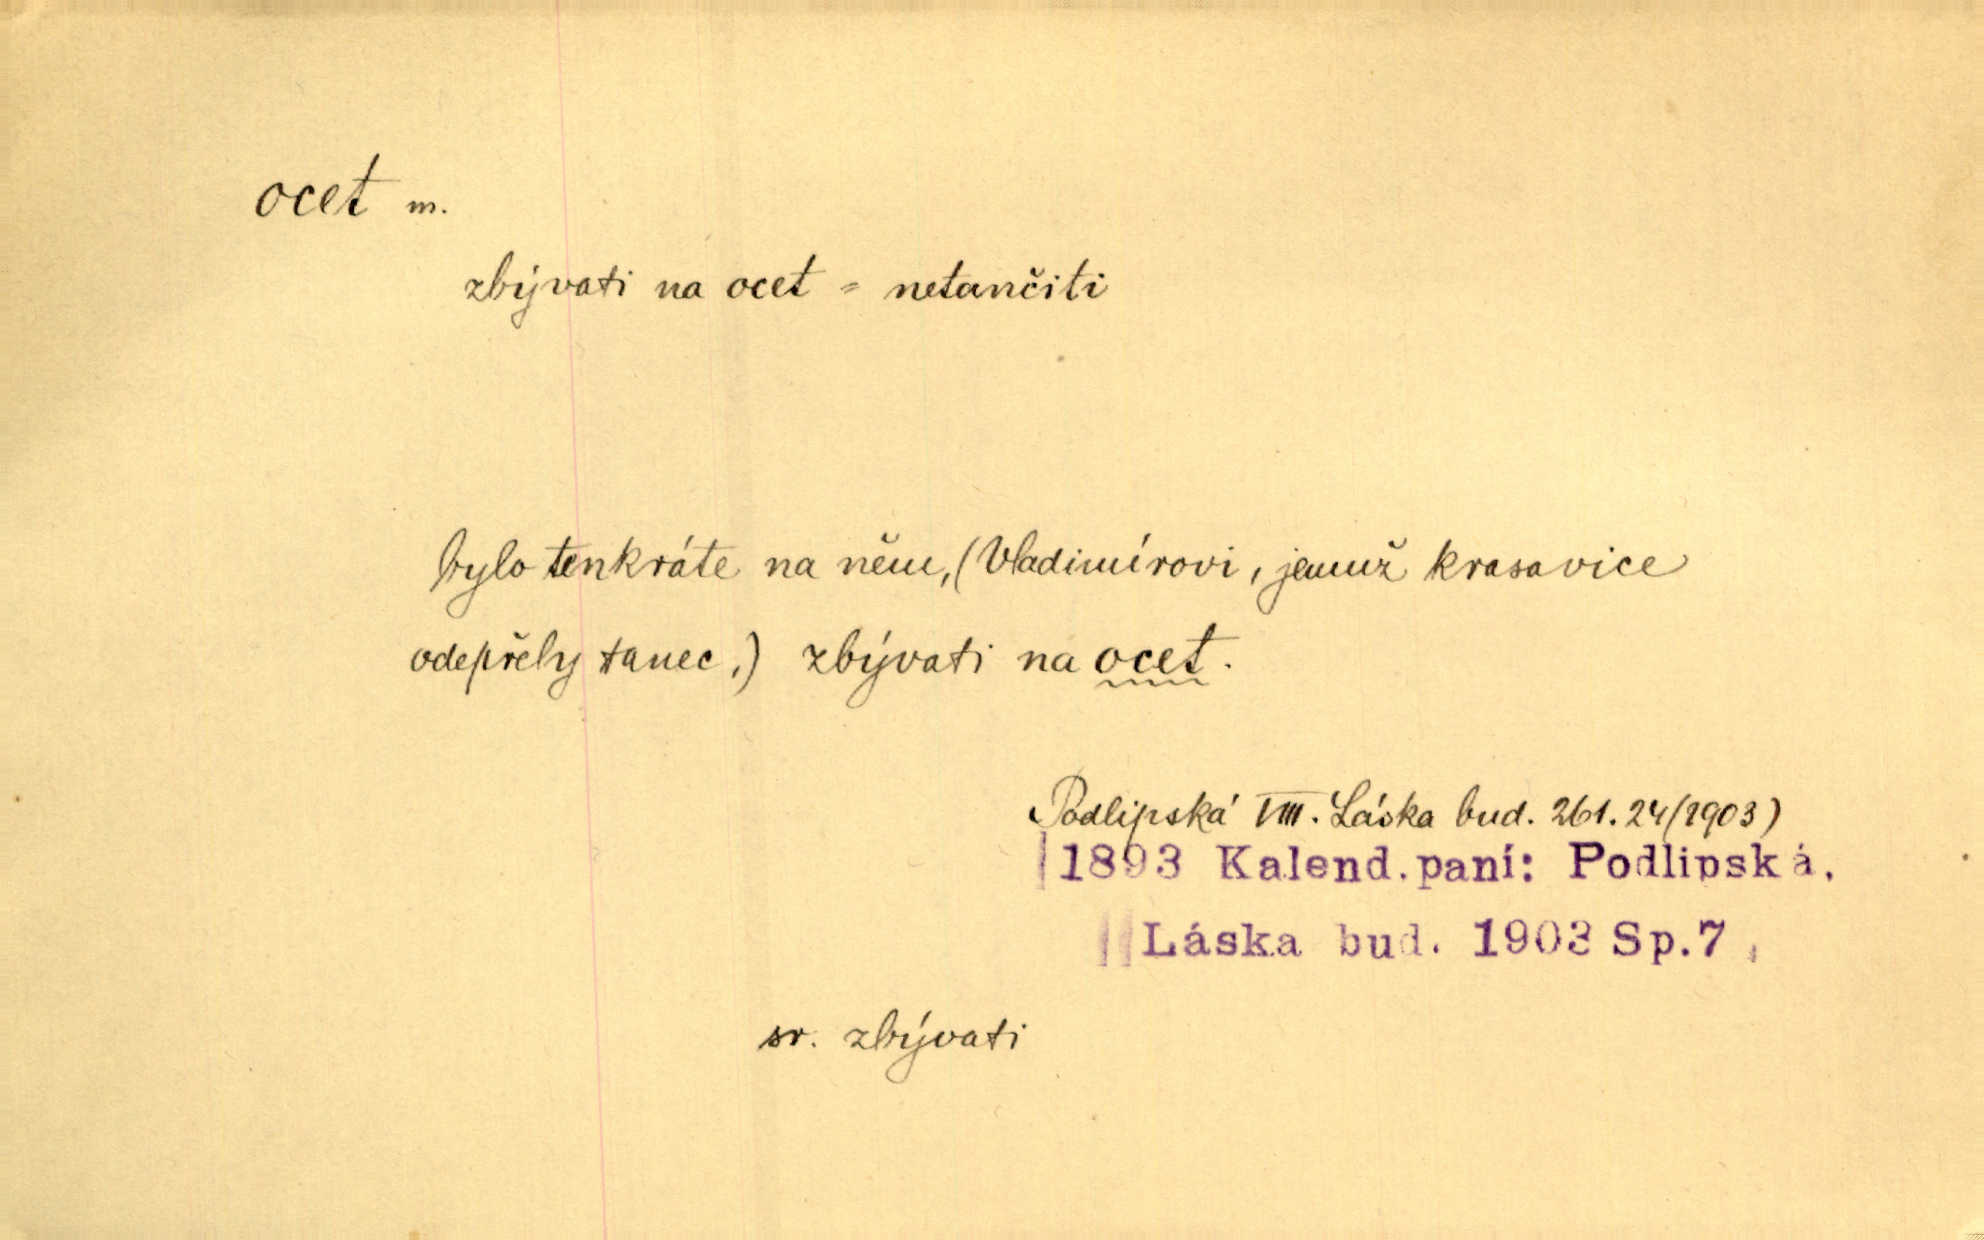 ocet m.
zbývati na ocet = netančiti
bylo tenkráte na něm, (Vladimírovi, jemuž krasavice
odepřely tanec,) zbývati na ocet.
Podlipská VIII. Láska bud. 261. 24 (1903)
1893 Kalend. paní: Podlipská,
Láska bud. 1903 Sp. 7,
sr. zbývati